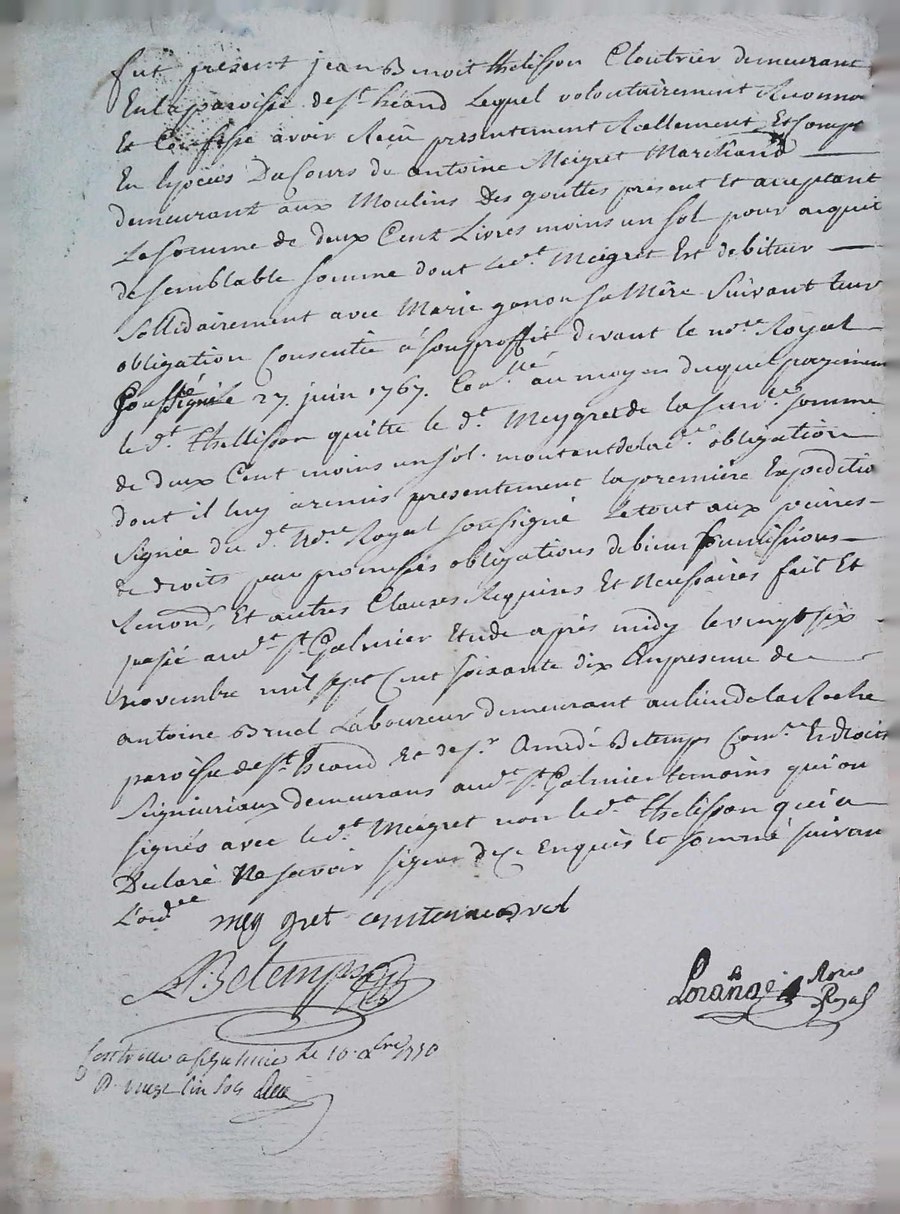 fut présent jean Benoit thelisson Cloutrier demeurant
En la paroisse de st. héand Lequel volontairement Reconnoi
Et Confesse avoir Reçu présentement Reellement Et Compt
En Espèces Du Cours de antoine Meigret Marchand
demeurant aux Moulins Des gouttes présent Et acceptant
La somme de deux Cent Livres moins un sol pour acquit
de semblable somme dont le d.t Meigret Est debiteur
Sollidairement avec Marie gonon sa Mère Suivant leur
obligation Consentie à son proffit devant le no.re Royal
Soussigné le 27. juin 1767. Con.llé au moyen duquel payemen
le d.t thellisson quitte le d.t Meygret de la sus.te somme
de deux Cent moins un sol. montant de la d.e obligation
dont il luy a remis présentement la première Expeditio
Signée du d.t No.re Royal soussigné Le tout aux peines
de droits par promesses obligations de biens soumissions
Renon.s Et autres Clauses Requises Et Necessaires fait Et
passé au d.t st. Galmier Etude après midy le vingt six
novembre mil sept Cent soixante dix En presence de
antoine Bruel Laboureur demeurant au lieu de la Roche
paroisse de st. heand Et de s.r Amédé Betemps Com.re En droits
Seigneuriaux demeurans au d.t st. Galmier temoins qui on
signés avec le d.t Meigret non le d.t thelisson qui a
Declaré Ne savoir signer de ce Enquis Et sommé suivan
L'ord.ee meygret antoine bruel
ABetemps
Lorange No.re Royal
Controlle a st Galmier Le 10 Xbre 1770
R. sols